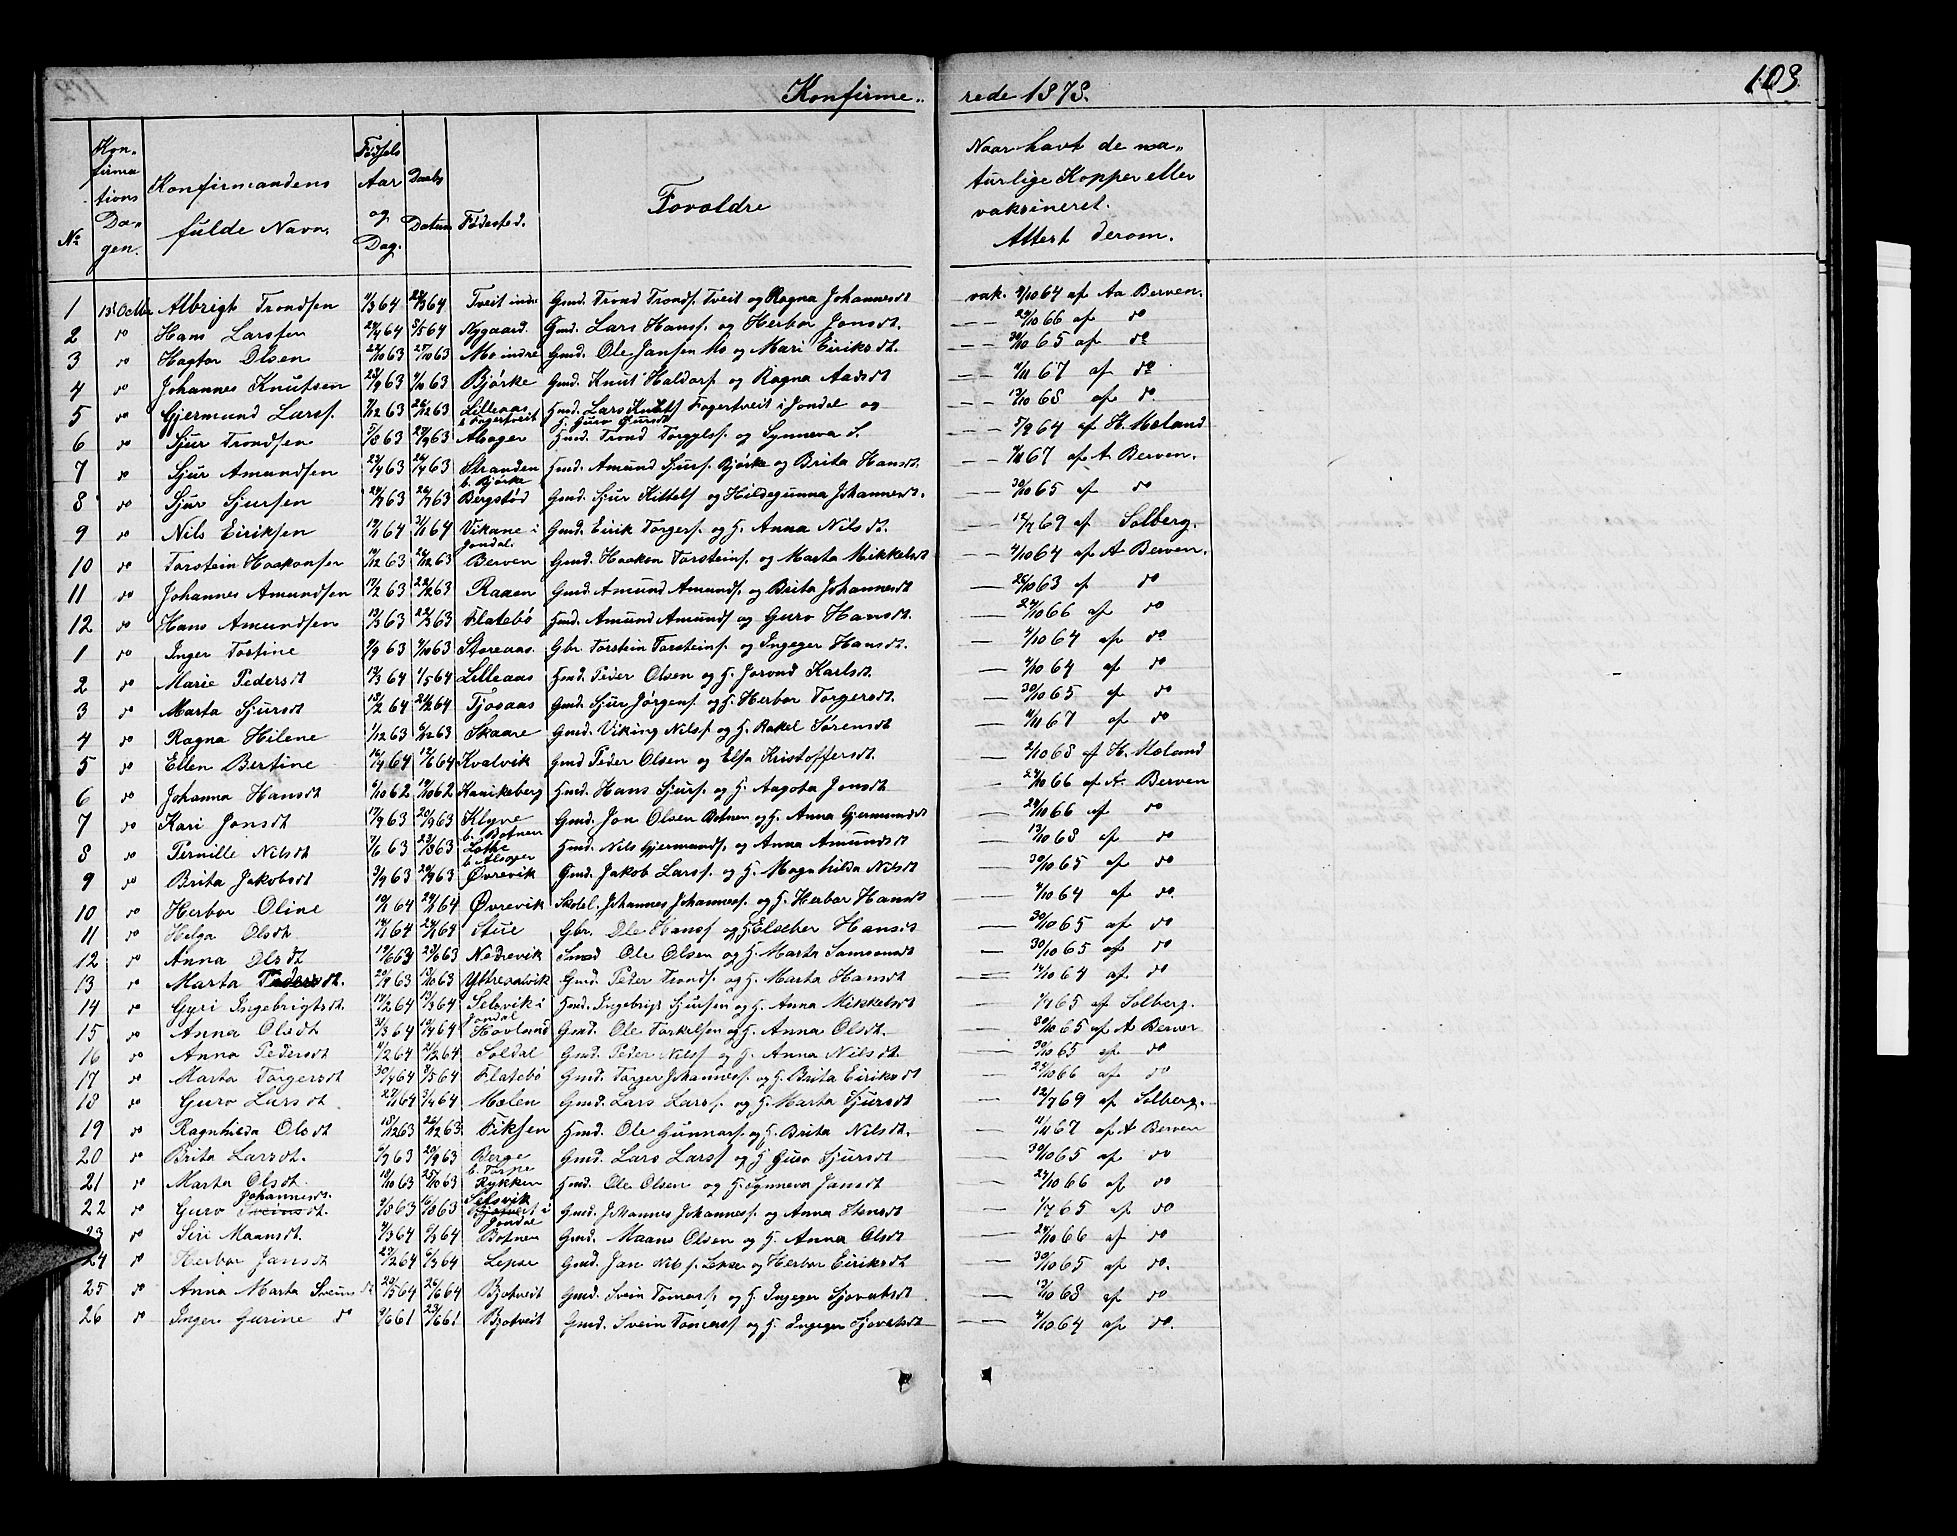 Konfirme„ rede 1878.
103
No
Konfirmations Dagen.
Konfirmandens fulde Navn.
Fødsels Aar og Dag.
Daabs Datum
Fødested.
Forældre
Naar havt de naturlige Kopper eller vaksineret. Attest derom.
1 13 Octbr Albrigt Trondsen 64 64 Tveit indre Gmd. Trond Tronds. Tveit og Ragna Johannesdt vak. 4/10 64 af Aa Berven.
2 do Hans Larssen 64 64 Nygaard. Gmd. Lars Hanss. og Herbor Jonsdt. — 29/10 66 af do
3 do Hagtor Olsen 63 63 Mo indre Gmd. Ole Jansen Mo og Mari Eiriksdt. — 30/10 65 af do
4 do Johannes Knutsen 63 63 Bjørke Gmd. Knut Haldors. og Ragna Aadsdt — 4/11 67 af do
5 do Gjermund Larss. 12 63 12 63 Lilleaas Hmd. Lars Knuts Fagertveit i Jondal og
i Fagertveit H. Guro — 12/10 68 af do
6 do Sjur Trondsen 63 63 Alsager Hmd. Trond Torgyls. og Synneva S. — 5/9 64 af H. Mæland
7 do Sjur Amundsen 63 63 Stranden b. Bjørke Hmd. Amund Sjurs. Bjørke og Brita Hansdt. — 4/11 67 af A Berven.
8 do Sjur Sjursen 63 63 Bergstød Gmd. Sjur Kittels og Hildegunna Johannesdt. — 30/10 65 af do
9 do Nils Eiriksen 64 64 Vikane i Jondal. Gmd. Eirik Torgers. og H. Anna Nilsdt. — 12/7 69 af Solberg.
10 do Torstein Haakonsen 12 63 12 63 Berven Gmd. Haakon Torsteins. og Marta Mikkelsdt — 4/10 64 af A Berven.
11 do Johannes Amundsen 63 63 Raaen Gmd. Amund Amunds. og Brita Johannesdt — 26/10 63 af do
12 do Hans Amundsen 63 63 Flatebø Hmd. Amund Amunds og Guro Hansdt. — 29/10 66 af do
1 do Inger Tostine 63 10 63 Storeaas. Gbr Torstein Torsteins. og Ingeger Hansdt. — 4/10 64 af do
2 do Marie Pedersdt 64 5 64 Lilleaas Hmd. Peder Olsen og H. Jorond Karlsdt — 4/10 64 af do
3 do Marta Sjursdt 2 64 64 Tjosaas Gmd. Sjur Jørgens. og H. Herbor Torgersdt. — 30/10 65 af do
4 do Ragna Hilene 12 63 12 63 Skaare Gmd. Viking Nilss. og H. Rakel Sørensdt — 4/11 67 af do
5 do Ellen Bertine 4 64 64 Kvalvik Gmd Peder Olsen og Elsa Kristoffersdt. — 2/10 68 af H. Mæland
6 do Johanna Hansdt 10 62 10 62 Kaaikeberg Hmd. Hans Sjurs. og H. Aagota Jonsdt — 29/10 66 af A. Berven
7 do Kari Jonsdt 63 63 Klyve b. Botnen Gmd. Jon Olsen Botnen og H. Anna Gjermundsdt — 29/10 66 af do
8 do Pernille Nilsdt 6 63 63 Lothe b. Alsager Hmd. Nils Gjermunds. og Anna Amundsdt — 12/10 68 af do
9 do Brita Jakobsdt 63 63 Øvrevik Gmd. Jakob Larss. og H. Magnhilda Nilsdt — 30/10 65 af do
10 do Herbor Oline 64 64 Øvrevik Skolel. Johannes Johanness. og H. Habor Hansdt — 4/10 64 af do
11 do Helga Olsdt. 64 64 Stue Gbr. Ole Hanss og H. Elseber Hansdt — 30/10 65 af do
12 do Anna Olsdt 6 63 6 63 Nedrevik Smed Ole Olsen og H. Marta Samsonsdt — 30/10 65 af do
13 do Marta Pedersdt. 63 10 63 Ytresævik Gmd. Peder Tronds. og H. Marta Hansdt — 4/10 64 af do
14 do Gyri Ingebrigtsdt. 2 64 64 Selsvik i Jondal Hmd. Ingebrigt Sjursen og H. Anna Mikkelsdt — 1/7 65 af Solberg.
15 do Anna Olsdt 3 64 4 64 Hovland Gmd. Ole Torkelsen og H. Anna Olsdt. — 30/10 65 af A Berven
16 do Anna Pedersdt 2 64 2 64 Soldal Gmd. Peder Nilss og H. Anna Nilsdt. — 30/10 65 af do
17 do Marta Torgersdt 4 64 5 64 Flatebø Gmd. Torger Johanness. og H. Brita Eiriksdt — 29/10 66 af do
18 do Guro Larsdt. 64 4 64 Mælen Gmd. Lars Larss. og H. Marta Sjursdt — 12/7 69 af Solberg.
19 do Ragnhilda Olsdt 12 63 12 63 Fiksen Hmd. Ole Gunnars. og H. Brita Nilsdt. — 4/11 67 af A Berven
20 do Brita Larsdt. 63 63 Berge b. Torpe Gmd. Lars Larss og H Guro Sjursdt — 30/10 65 af do
21 do Marta Olsdt. 10 63 10 63 Rykken Hmd. Ole Olsen og H. Synneva Jansdt — 29/10 66 af do
22 do Guro Johannesdt. 8 63 8 63 Selsvik i Jondal Gmd. Johannes Johanness. og Anna Stensdt — 1/7 65 af do
23 do Siri Maansdt. 3 64 3 64 Botnen Gmd. Maans Olsen og H. Anna Olsdt — 29/10 66 af do
24 do Herbor Jansdt 2 64 3 64 Lepse Gmd. Jan Nils s. Lekse og Herbor Eiriksdt — 30/10 65 af do.
25 do Anna Marta Sveinsdt 5 64 6 64 Bjotveit Gmd. Svein Tomass. og H. Ingeger Sjovatsdt — 12/10 68 af do
26 do Inger Gurine do 6 61 6 61 Bjotveit Gmd. Svein Tomass og H. Ingeger Sjovatsdt — 4/10 64 af do.